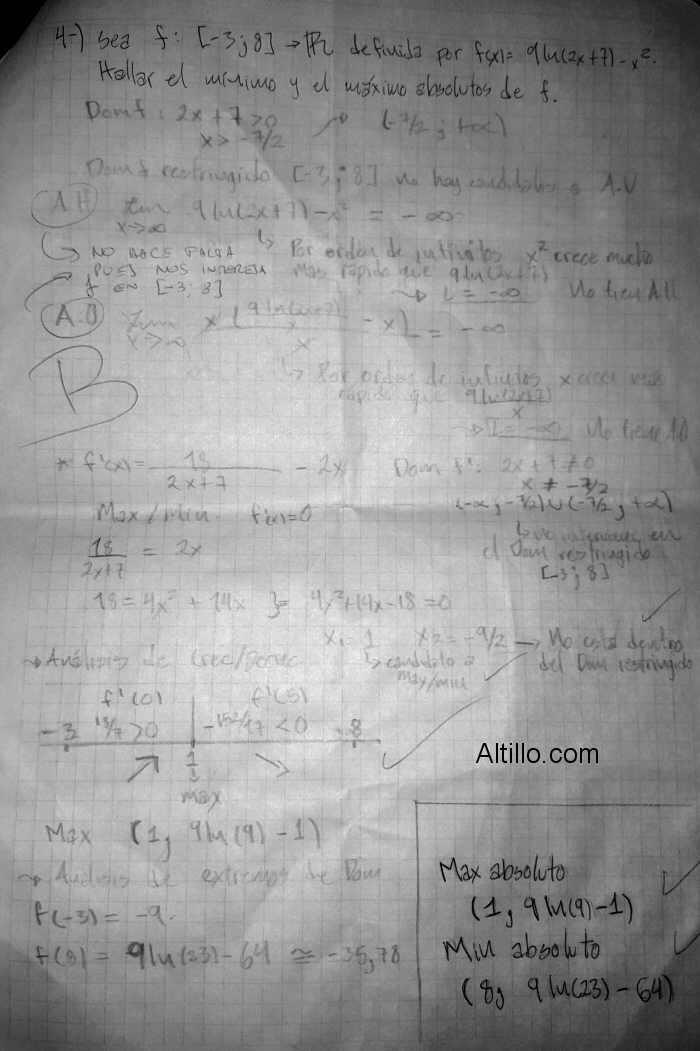 4-) Sea f: [-3; 8] → ℝ definida por f(x) = 9 ln(2x+7) - x².
Hallar el mínimo y el máximo absolutos de f.
Dom f: 2x + 7 > 0
x > -7/2 → (-7/2; +∞)
Dom f restringido [-3; 8] no hay candidatos a A.V
A.H lim x→∞ 9 ln(2x+7) - x² = -∞
↳ NO HACE FALTA PUES NOS INTERESA f EN [-3; 8]
↳ Por orden de infinitos x² crece mucho
mas rápido que 9 ln(2x+7)
→ L = -∞ No tiene AH
A.O lim x→∞ x ( 9 ln(2x+7) / x - x ) / x = -∞
B
↳ Por orden de infinitos x crece mas
rápido que 9 ln(2x+7) / x
→ L = -∞ No tiene AO
* f'(x) = 18 / 2x+7 - 2x
Dom f': 2x + 7 ≠ 0
x ≠ -7/2
(-∞; -7/2) ∪ (-7/2; +∞)
↳ en
el Dom restringido
[-3; 8]
Max/Min f'(x) = 0
18 / 2x+7 = 2x
18 = 4x² + 14x } = 4x² + 14x - 18 = 0
x1 = 1 x2 = -9/2 → No está dentro
del Dom restringido
↳ candidato a
max/min
→ Análisis de Crec/Decrec
f'(0) f'(5)
-3 18/7 > 0 -152/17 < 0 8
1
↓
max
Altillo.com
Max (1; 9 ln(9) - 1)
→ Análisis de extremos de Dom
f(-3) = -9.
f(8) = 9 ln(23) - 64 ≅ -35,78
Max absoluto
(1; 9 ln(9) - 1)
Min absoluto
(8; 9 ln(23) - 64)